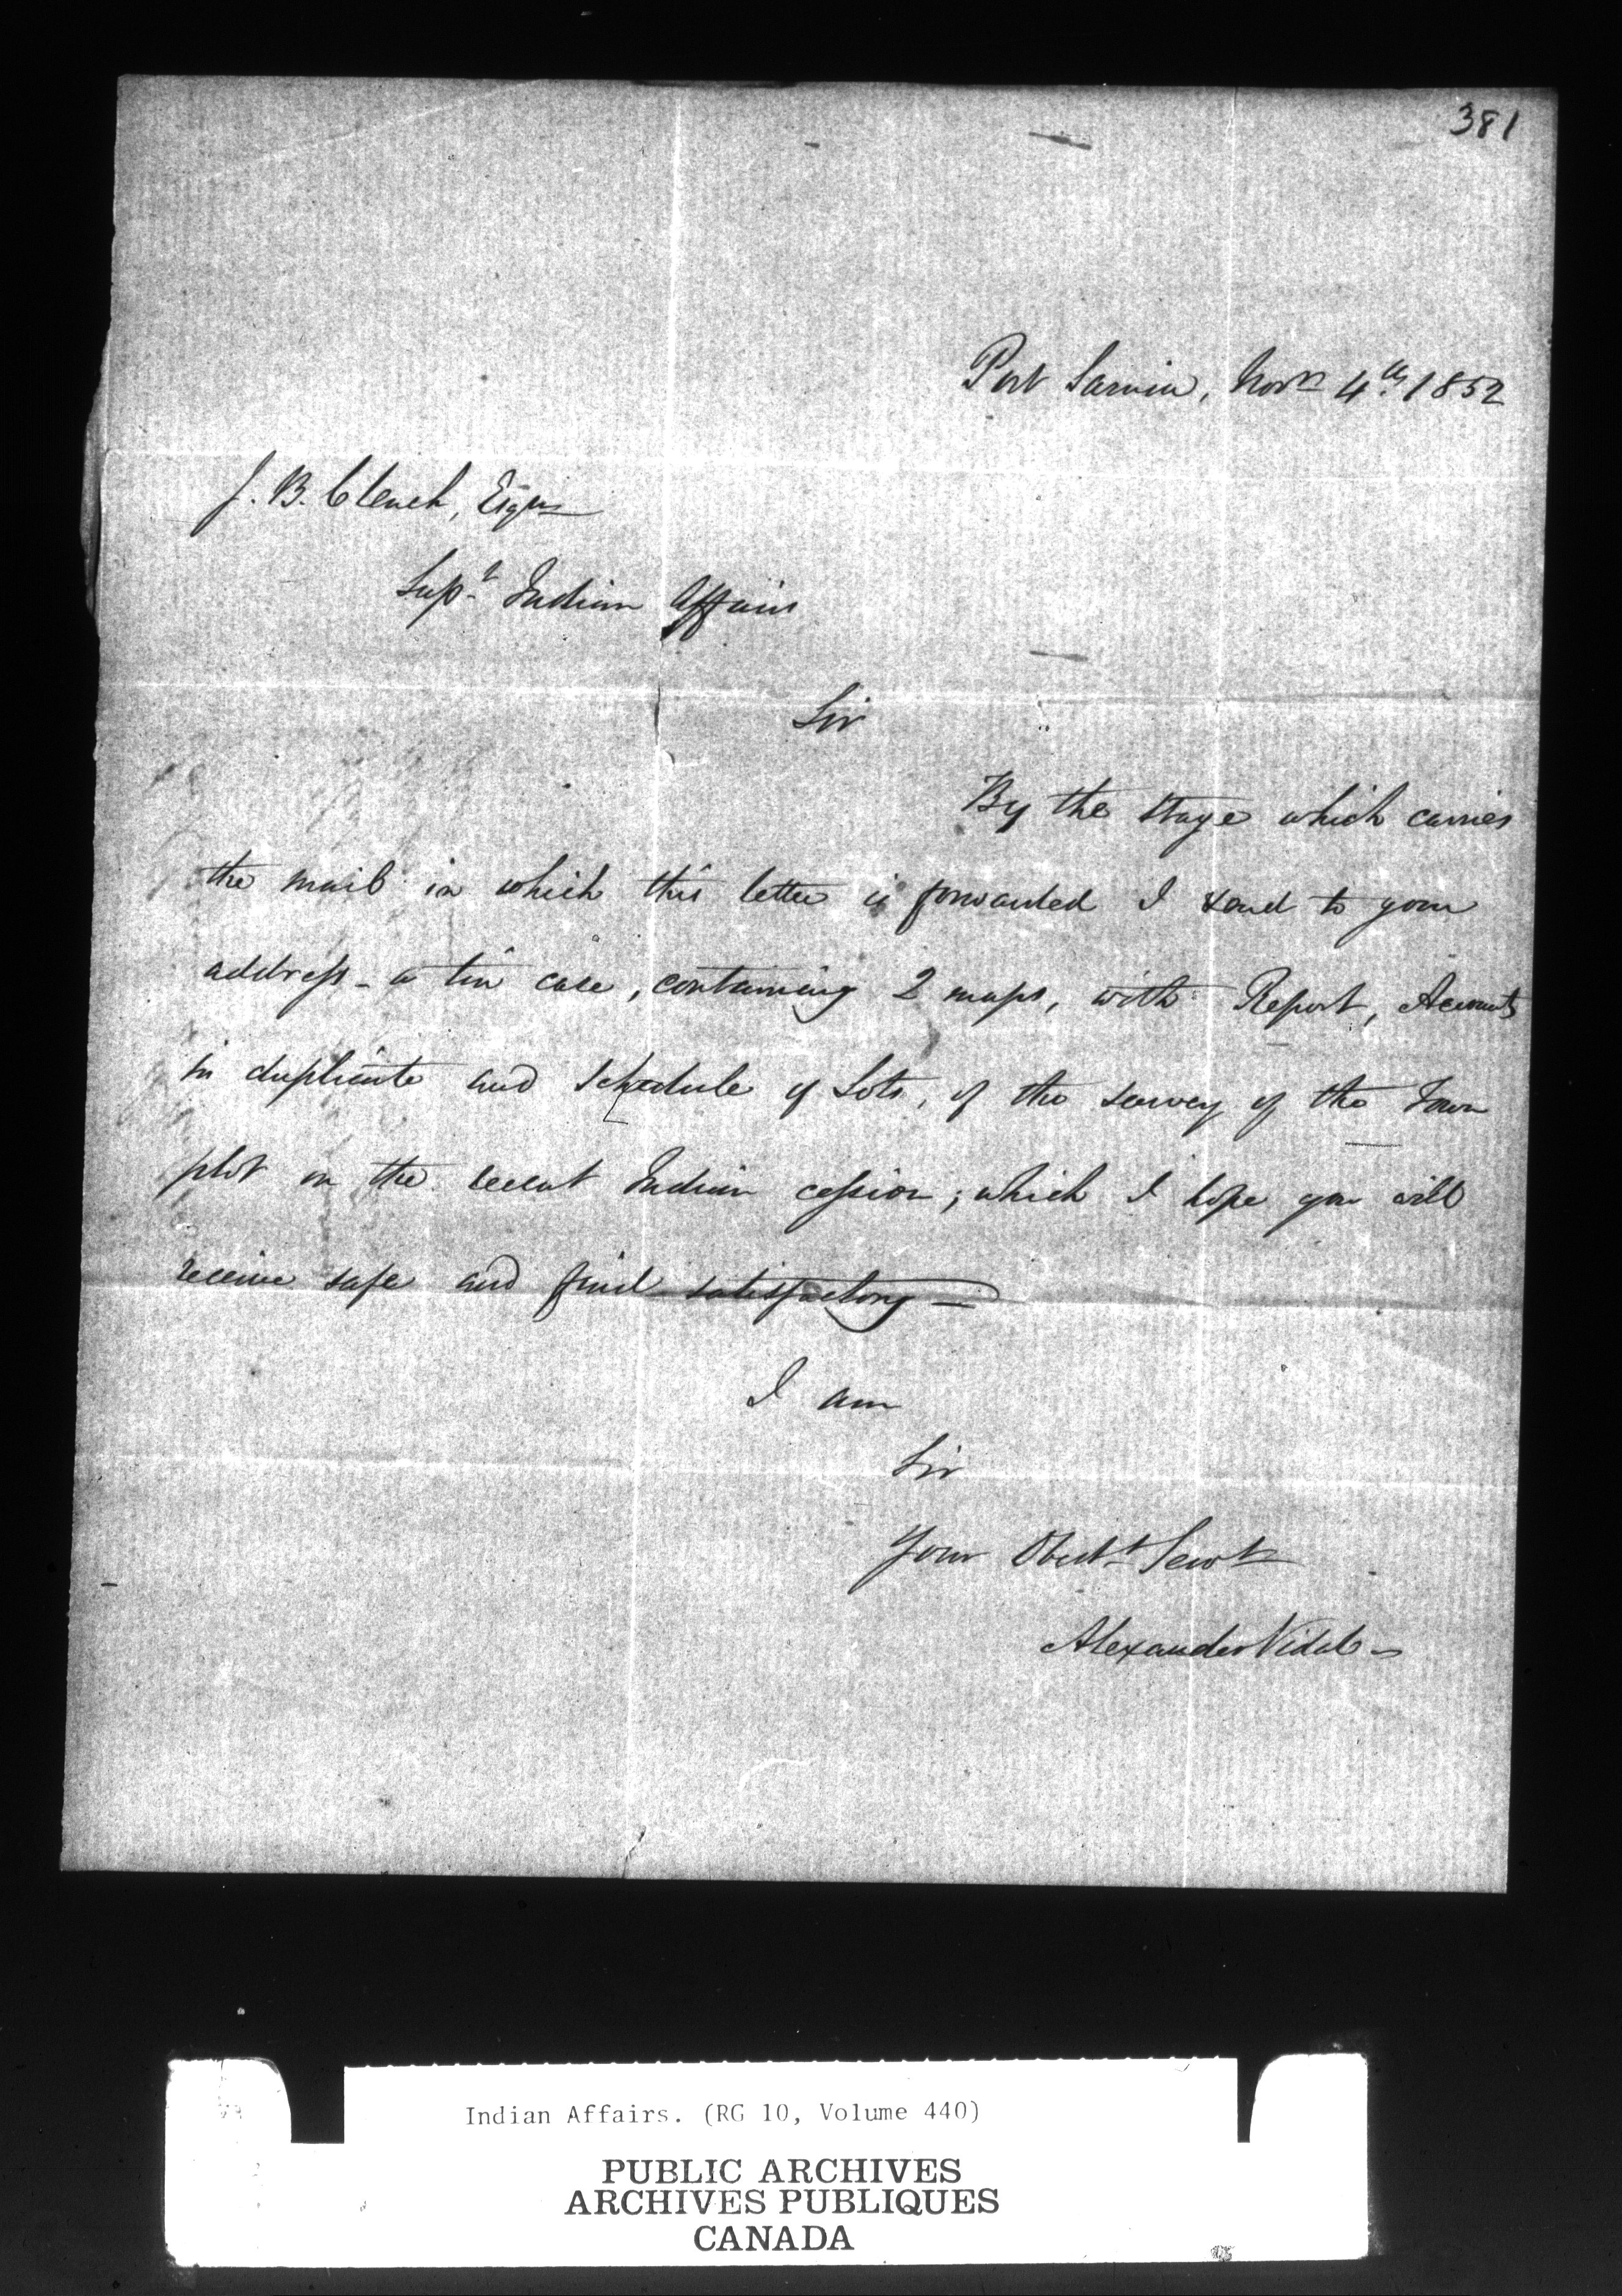 381
Port Sarnia, Novr 4th, 1852
J. B. Clench, Esqre
Supt Indian Affairs
Sir
By the stage which carries
the mail in which this letter is forwarded I send to your
address - a tin case, containing 2 maps, with Report, Accounts
in duplicate and schedule of Lots, of the survey of the Town
plot on the recent Indian cession; which I hope you will
receive safe and find satisfactory —
I am
Sir
Your Obedt Servt
Alexander Vidal -
Indian Affairs. (RG 10, Volume 440)
PUBLIC ARCHIVES
ARCHIVES PUBLIQUES
CANADA